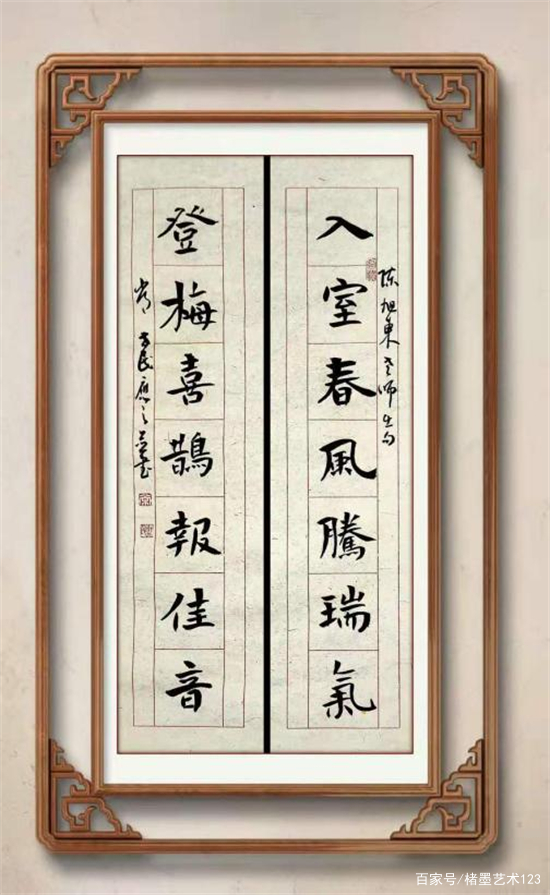 入室春風騰瑞氣
陈旭东老师出句
登梅喜鵲報佳音
百家号/楮墨艺术123